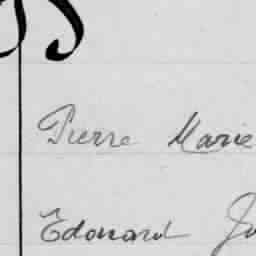 Pierre Marie
Édouard